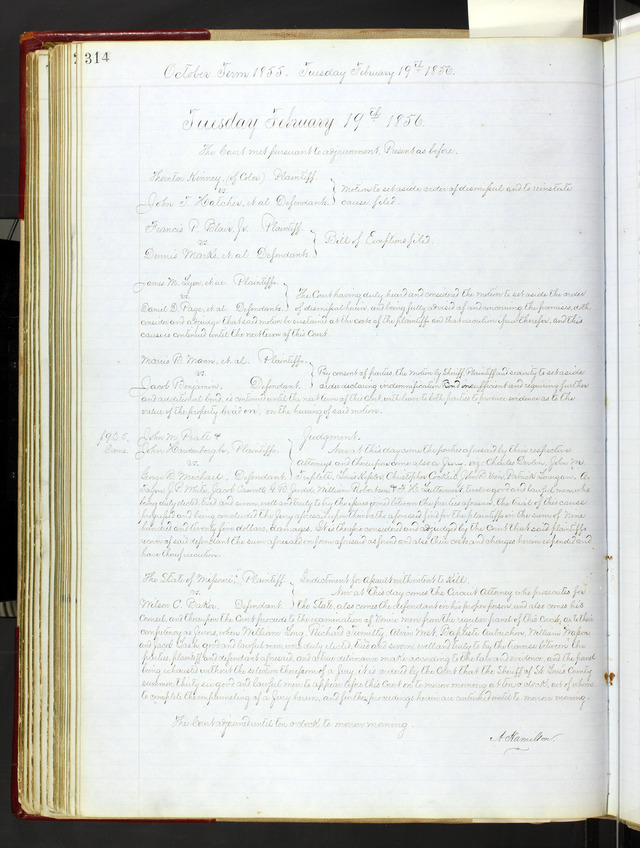 314
October Term 1855. Tuesday February 19th 1856.
Tuesday February 19th 1856
The Court met pursuant to adjournment, Present as before.
Thornton Kinney, (of Color) Plaintiff.
vs.
John F. Hatcher, et al Defendants.
Motion to set aside order of dismissal and to reinstate
cause filed.
Francis P. Blair, Jr. Plaintiff.
vs.
Dennis Marks, et al Defendants.
Bill of Exceptions filed.
James M. Lyon, et al Plaintiffs.
vs.
Daniel D. Page, et al Defendants.
The Court having duly heard and considered the motion to set aside the order
of dismissal herein, and being fully advised of and concerning the premises, doth
consider and adjudge that said motion be sustained at the costs of the plaintiffs and that execution issue therefor, and this
cause is continued until the next term of this Court.
Plaintiffs.
vs.
Jacob Benjamin, Defendant.
By consent of parties, the motion by Sheriff, Plaintiff and security to set aside
order declaring indemnification Bond insufficient and requiring further
and additional bond, is continued until the next term of this Court with leave to both parties to produce evidence as to the
value of the property levied on, on the hearing of said motion.
John M. Platt &
John Hardenbergh, Plaintiffs.
vs.
George R. Michael, Defendant.
Judgment.
Now at this day come the parties aforesaid by their respective
attorneys and thereupon comes also a Jury,
Christopher Patrick
William Robertson good and lawful men, who
being duly elected, tried and sworn well and truly to try the issue joined between the parties aforesaid, the trial of this cause
find for the plaintiffs in the sum of Nine
hundred and twenty five dollars, damages. It is therefore considered and adjudged by the Court that said plaintiffs
recover of said defendant the sum aforesaid in form aforesaid as found and also their costs and charges herein expended and
have thereof execution.
The State of Missouri, Plaintiff.
vs.
Wilson C. Baker, Defendant.
Indictment for assault with intent to kill.
Now at this day comes the Circuit Attorney who prosecutes for
the State, also comes the defendant in his proper person, and also comes his
Counsel, and thereupon the Court proceeds to the examination of men from the regular panel of this Court, as to their
competency as jurors, when William Richard Baptiste William
and Jacob good and lawful men, were duly elected, tried and sworn well and truly to try the issues between the
parties plaintiff and defendant aforesaid, and a true deliverance make according to the law and evidence, and the panel
being exhausted without the selection therefrom of a Jury, it is ordered by the Court that the Sheriff of St. Louis County
summon thirty six good and lawful men to appear before this Court on to morrow morning at ten o'clock, out of whom
to complete the impanneling of a Jury herein, and further proceedings herein are continued until to morrow morning.
The Court adjourned until ten o'clock to morrow morning.
A. Hamilton.